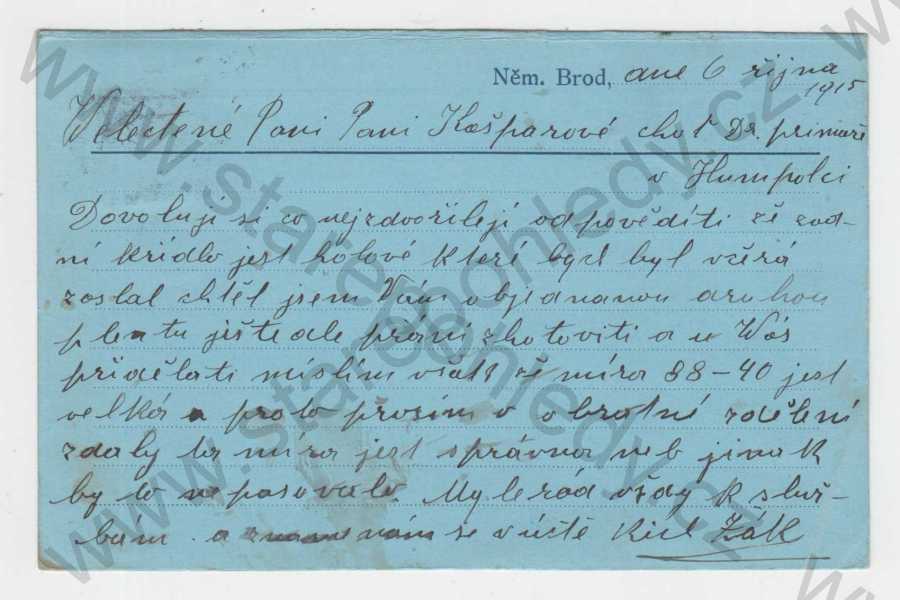 Něm. Brod, dne 6 října
1915
Velectené Paní Paní Kašparové chot Dr. primáře
v Humpolci
Dovoluji si co nejzdvořileji odpověditi že zad-
ní křídlo jest hotové které bych byl včerá
zaslal chtěl jsem Vám objednanou druhou
plentu ještedle přání zhotoviti a u Vás
přidělati míslím však že míra 88-40 jest
velká a proto prosím v obratné zdělení
zdaly ta míra jest správna neb jinak
by to nepasovalo. Mylerád vždy k služ-
bám a se v úctě Žák
www.starepohledy.cz